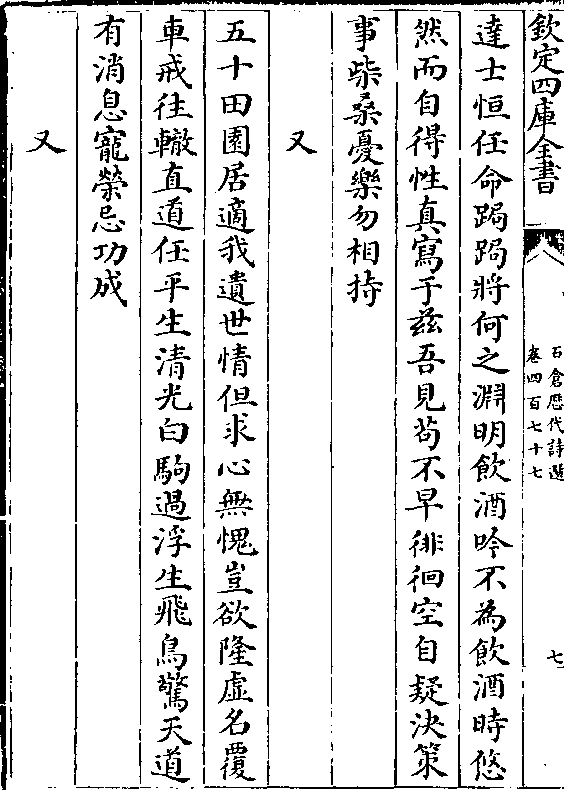 欽定四庫全書
石倉歷代詩選
卷四百七十七
七
達士恒任命跼跼將何之淵明飲酒吟不為飲酒時悠
然而自得性真寫于兹吾見苟不早徘徊空自疑決策
事柴桑憂樂勿相持
又
五十田園居適我遺世情但求心無愧豈欲隆虛名覆
車戒往轍直道任平生清光白駒過浮生飛鳥驚天道
有消息寵榮忌功成
又